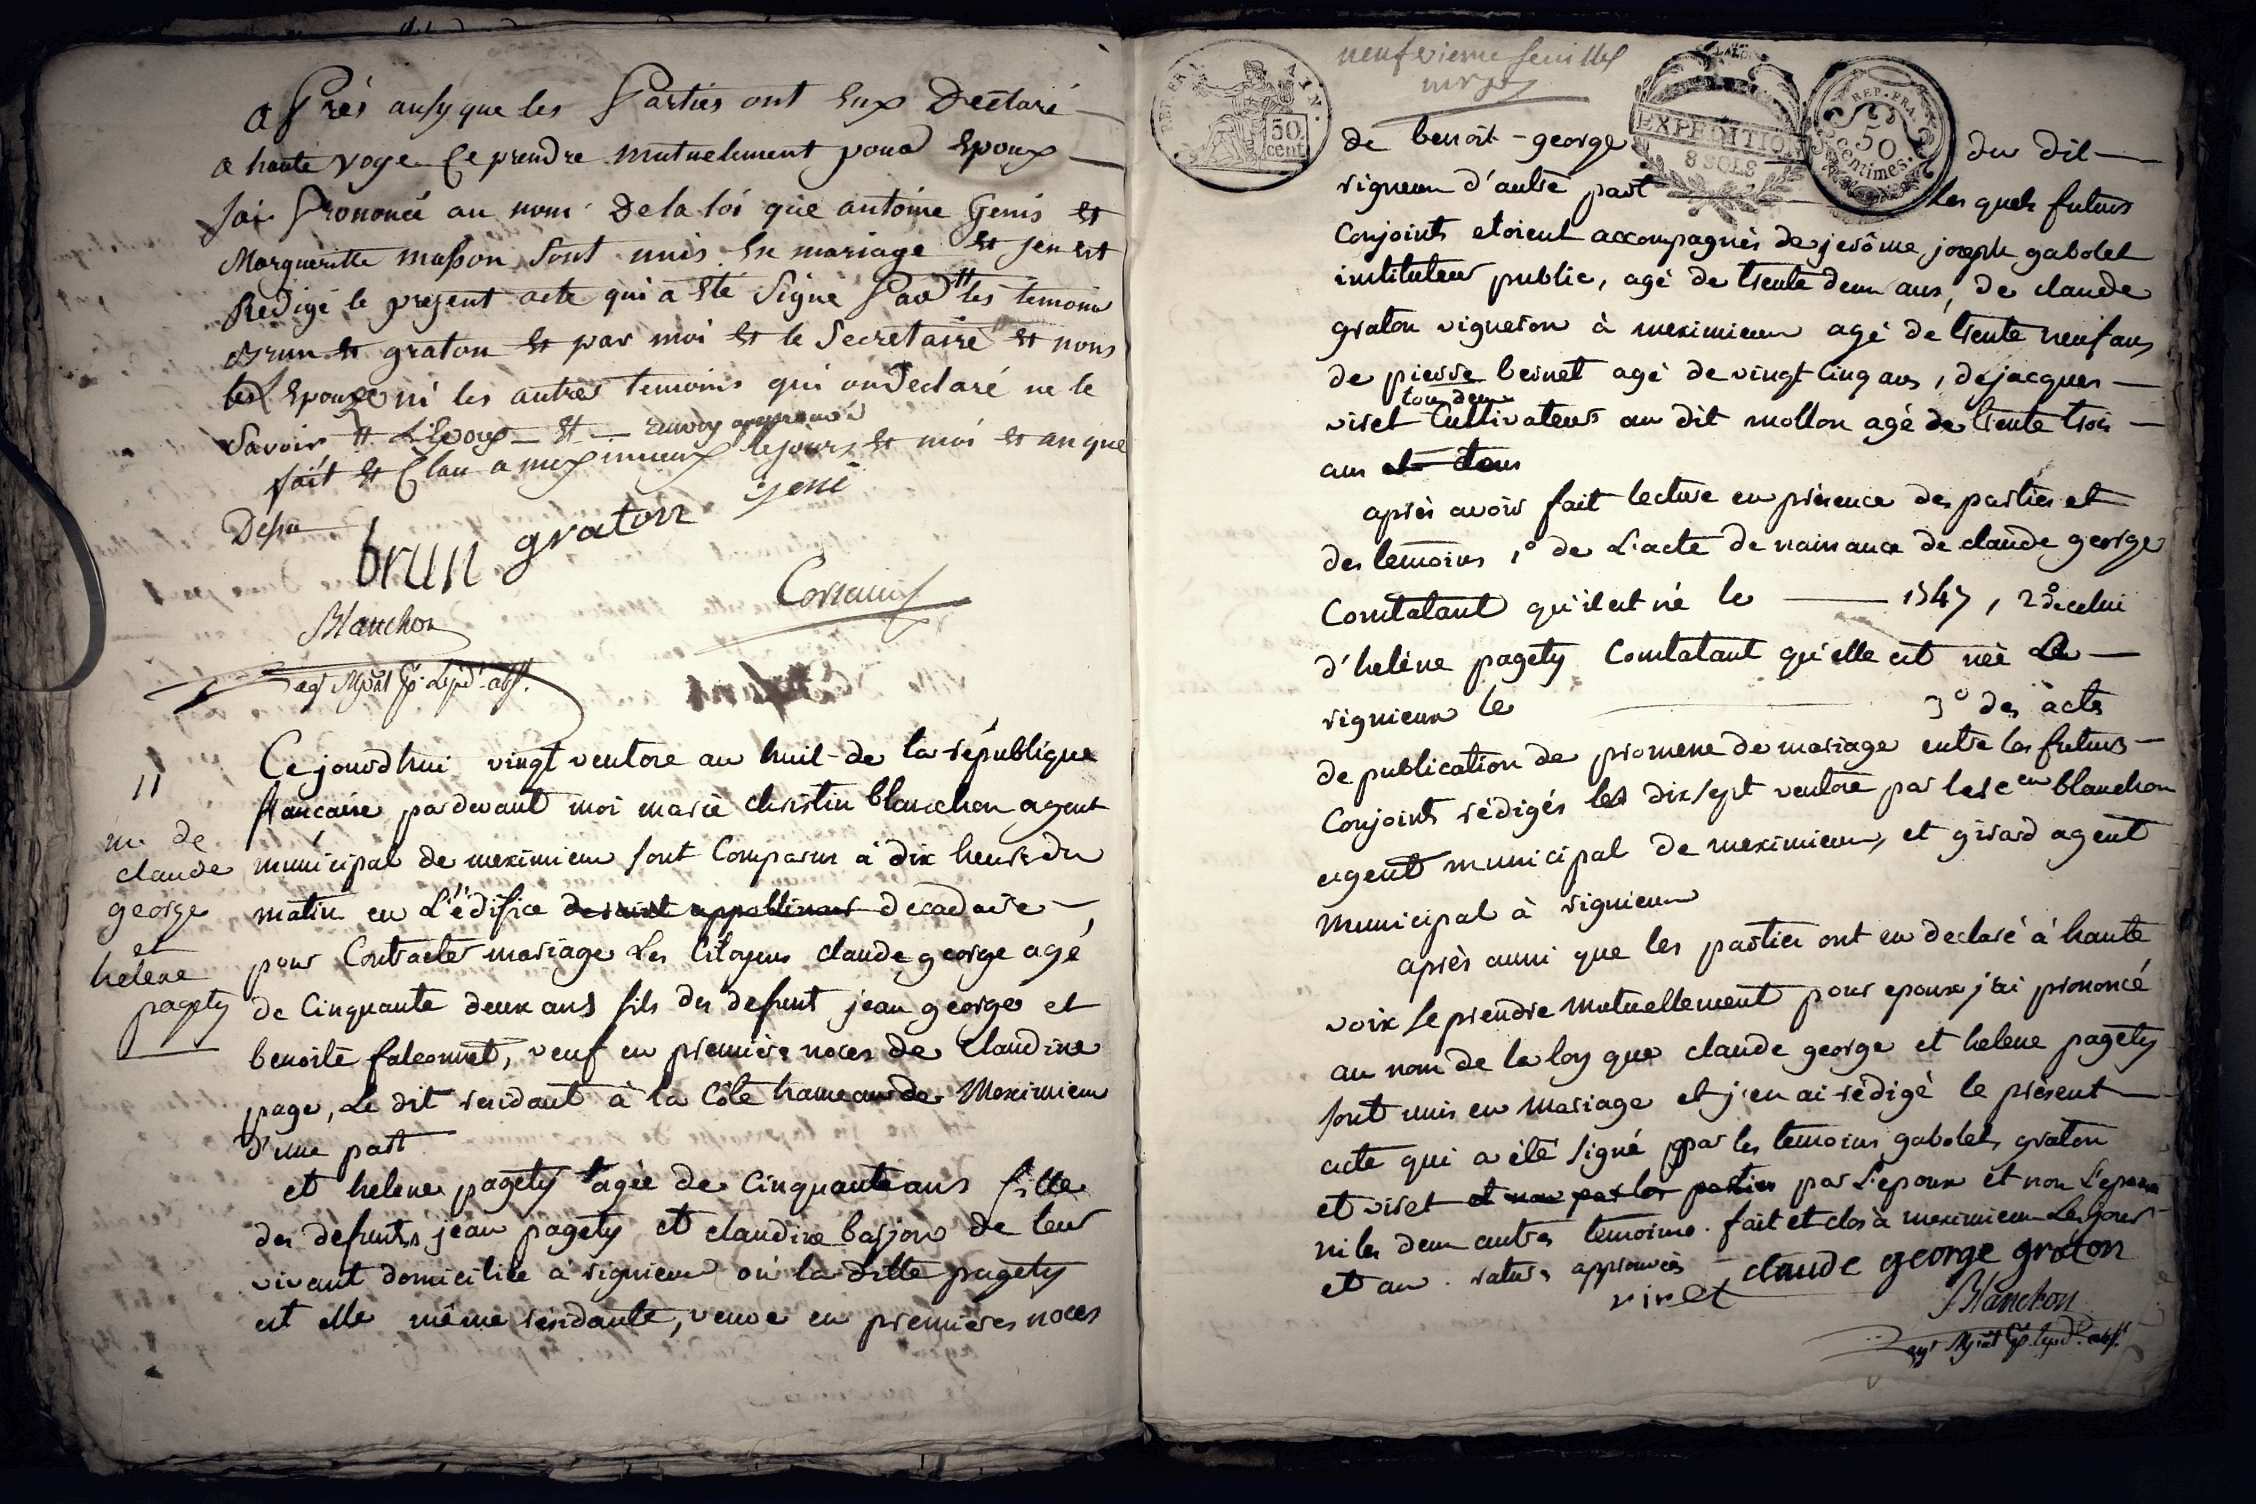 après ausy que les Parties ont eux Declaré
a haute voye Ce prendre mutuelement pour Epoux
jai Prononcé au nom De la loi que antoine Genis et
Margueritte masson Sont unis En mariage et jen est
Redigé le present acte qui a Eté Signé Par les temoin
Brun et graton et par moi et le Secretaire et nous
les Epouze ni les autres temoins qui on Declaré ne le
Savoir L'Epoux et renvoy approuvé
fait et Clau a meximieux le jours et moi et an que
Desu
brun graton jeni
Blanchon
agt Mpal
11
m. de
claude
george
et
helene
pagety
Ce jourdhui vingt ventose an huit de la république
francaise pardevant moi marie christin blanchon agent
municipal de meximieux sont Comparus à dix heures du
matin en L'édifice de saint appollinard decadaire
pour Contracter mariage Les Citoyens claude george agé
de Cinquante deux ans fils des defunt jean george et
benoite falconnet, veuf en premières noces de Claudine
page, Le dit residant à la Côte hameau de Meximieux
d'une part
et helene pagety agée de Cinquante ans fille
des defunts jean pagety et claudine barjon de leur
vivant domicilies à rignieux où la ditte pagety
est elle même residante, veuve en premières noces
REP. FRA. AIN.
50
cent.
neufvieme feuillet
EXPEDITION
8 SOLS
REP. FRA.
50
centimes.
de benoit george du dit
rignieux d'autre part Les quels futurs
Conjoints etoient accompagnés de jerôme joseph gabolet
instituteur public, agé de trente deux ans, de claude
graton vigneron à meximieux agé de trente neuf ans
de pierre bernet agé de vingt cinq ans, de jacques
tous deux
viret Cultivateurs au dit mollon agé de trente trois
ans et tous
après avoir fait lecture en présence des parties et
des temoins 1° de L'acte de naissance de claude george
Constatant qu'il est né le 1747, 2° de celui
d'helène pagety Constatant qu'elle est née à
rignieux le 3° des actes
de publication de promesse de mariage entre les futurs
Conjoints rédigés les dix sept ventose par les cen blanchon
agent municipal de meximieux, et girard agent
municipal à rignieux
après aussi que les parties ont eu declaré à haute
voix se prendre mutuellement pour epoux j'ai prononcé
au nom de la loy que claude george et helene pagety
sont unis en mariage et j'en ai rédigé le présent
acte qui a été signé par les temoins gabolet, graton
et viret et non par les parties par L'epoux et non L'epouse
ni les deux autres temoins. fait et clos à meximieux Les jour
et an. ratures approuvées
viret claude george graton
Blanchon
agt Mpal